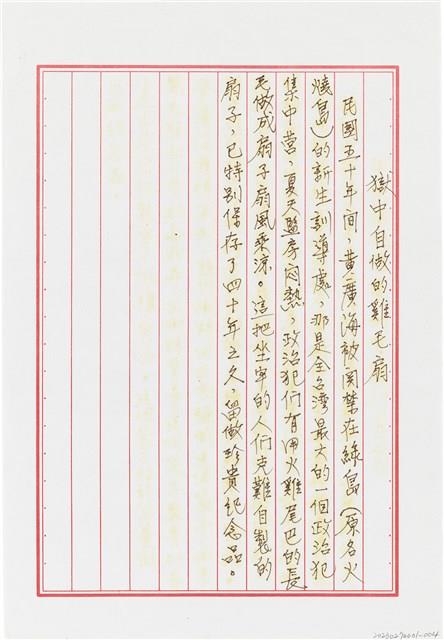 獄中自做的雞毛扇
民國五十年間，黃廣海被関禁在綠島（原名火
燒島）的新生訓導處，那是全台灣最大的一個政治犯
集中營，夏天監房悶熱，政治犯們有用火雞尾巴的長
毛做成扇子扇風乘涼。這把坐牢的人们克難自製的
扇子，已特別保存了四十年之久，留做珍貴纪念品。
20230270001-0004